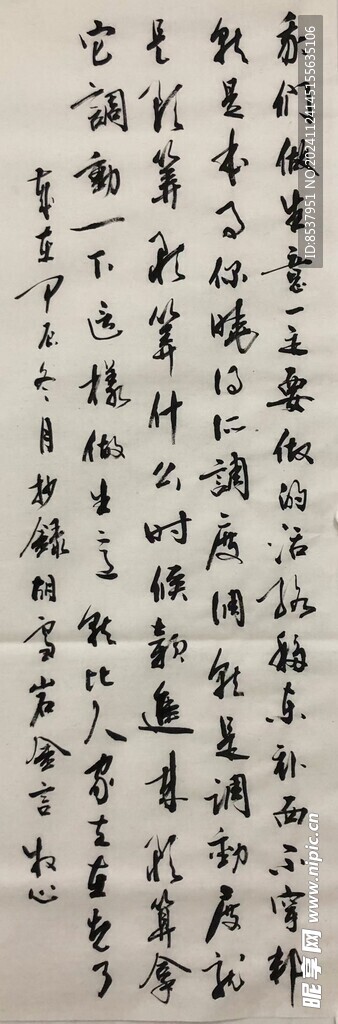 我们做生意一定要做的活络移东补西不穿帮
就是本事你晓得所谓调度调就是调动度就
是预算预算什么时候款进来预算拿
它調動一下這樣做生意就比人家走在先了
歲在甲辰冬月抄錄胡雪岩金言 牧心
ID:8537951 NO:20241124145155635106
昵享网 www.nipic.cn